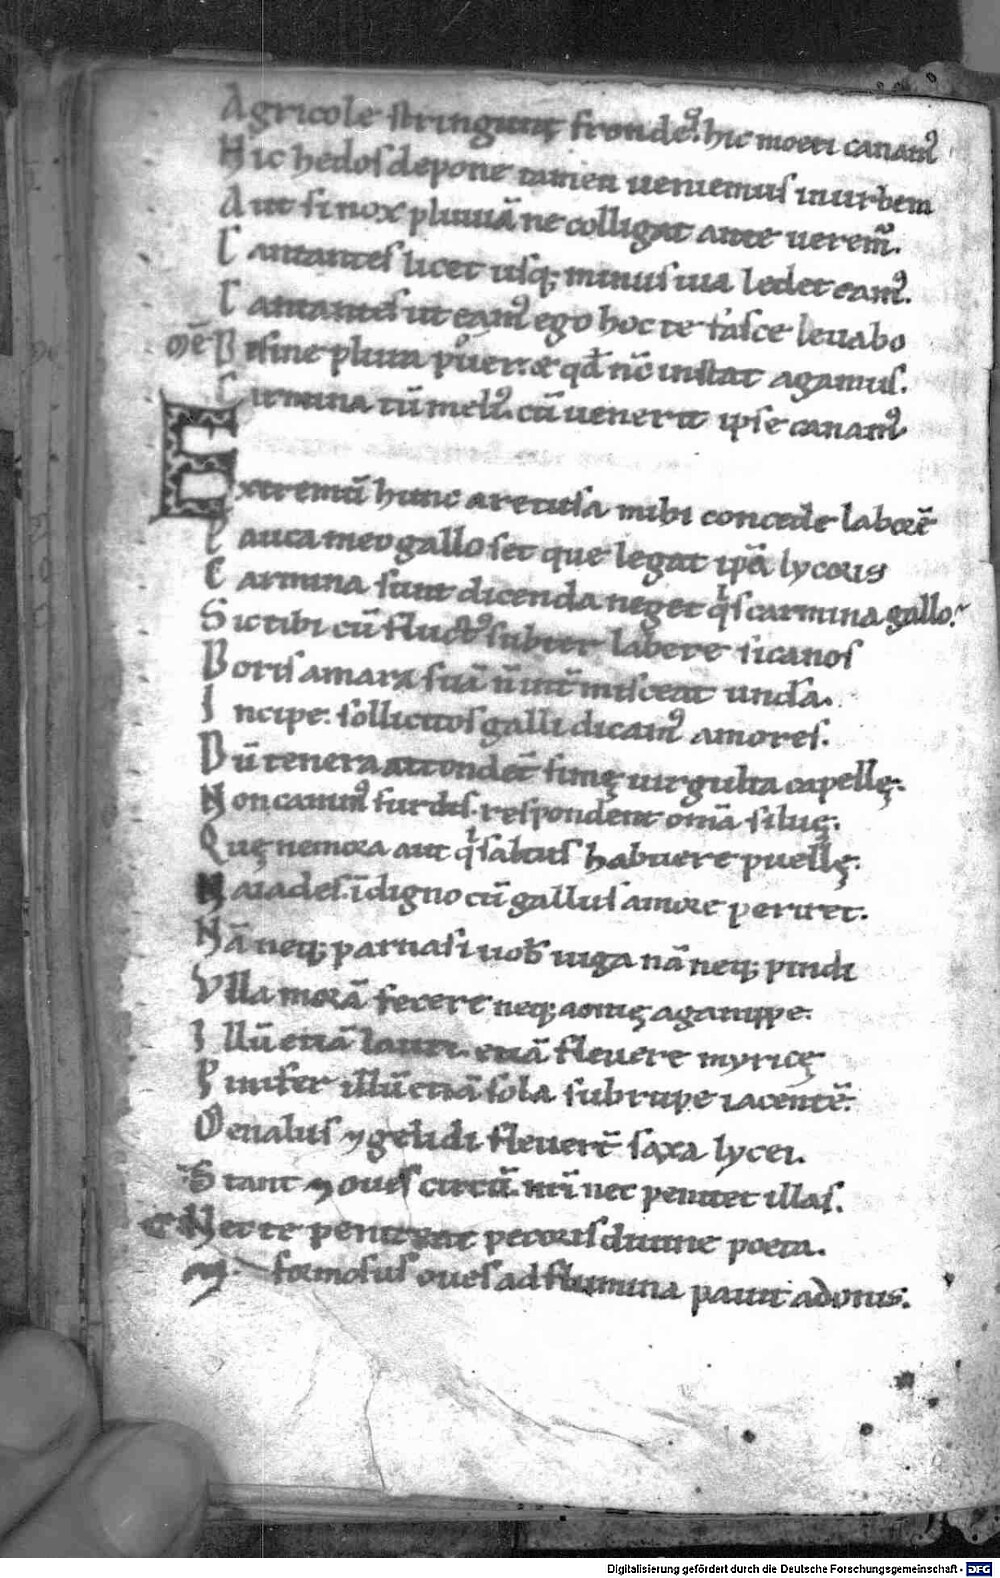 Agricole stringunt frondeſ. hic moeri canam᷒
Hic hedoſ depone tamen ueniemuſ in urbem
Aut ſi nox pluuiā ne colligat ante uerem᷒.
Cantanteſ licet uſq; minuſ uia ledet eam᷒.
Cantanteſ ut eam᷒ ego hoc te faſce leuabo
Mē Deſine plura puer. & qđ nc̄ inſtat agamuſ.
Carmina tū meli᷒. cū uenerit ipſe canam᷒
Extremū hunc aretuſa mihi concede laborē
Pauca meo gallo ſet que legat ipā lycoris
Carmina ſunt dicenda neget qͥſ carmina gallo.
Sic tibi cū fluct᷒ ſubter labere ſicanoſ
Doriſ amara ſuā n̄ int̄ miſceat unda.
Incipe. ſollicitoſ galli dicam᷒ amoreſ.
Dū tenera attondēt ſimę uirgulta capellę.
Non canim᷒ ſurdiſ. reſpondent omīa ſiluę.
Quę nemora aut qͥ ſaltuſ habuere puellę.
Naiadeſ. īdigno cū galluſ amore periret.
Nā neq; parnaſi uob̄ iuga nā neq; pindi
Vlla morā fecere neq; aonię aganippe.
Illū etiā lauri. etiā fleuere myricę
Pinifer illū etiā ſola ſub rupe iacentē.
Menaluſ ⁊ gelidi fleuert̄ ſaxa lycei.
Stant ⁊ oueſ circū. nr̄i nec penitet illaſ.
Nec te peniteat pecoriſ diuine poeta.
formoſuſ oueſ ad flumina pauit adonis.
Digitalisierung gefördert durch die Deutsche Forschungsgemeinschaft - DFG